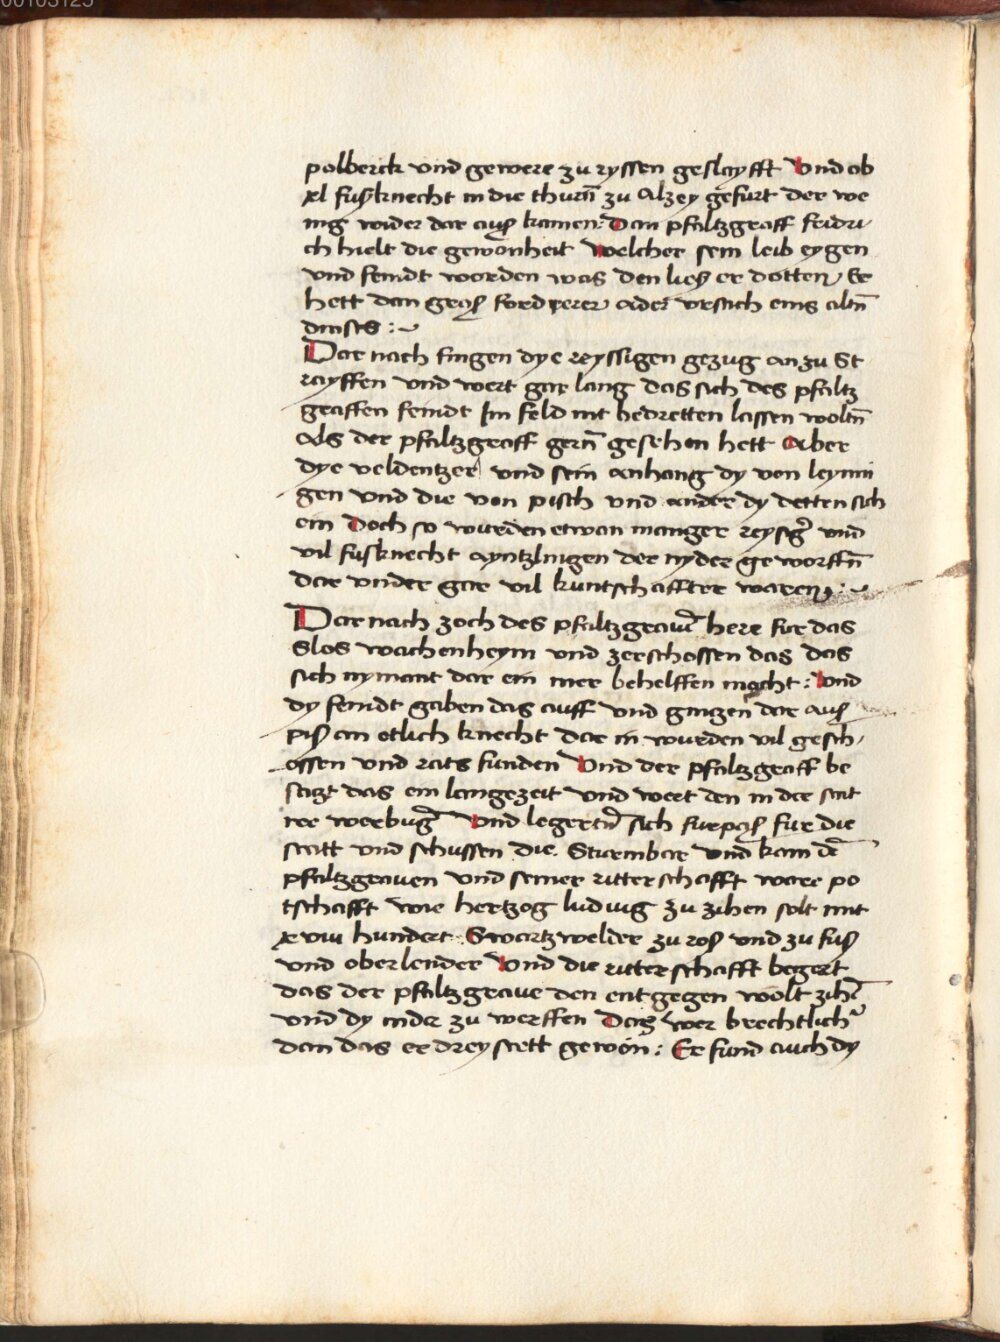 00103125
polberck vnd gewere zu ryssen geslayfft Vnd ob
xl fuſknecht in die thurn̄ zu Alzey gefurt der we
nig wider dar auſ kamen: Dan pfaltzgraff fridri
ch hielt die gewonheit Welcher sein leib eygen
vnd feindt worden was den lieſ er dotten Er
hett dan groſ forderer oder vrsach eins altn̄
dinstes :~
Dar nach fingen dye reyssigen gezug an zu St
rayffen vnd wert gar lang das sich des pfaltz
graffen feindt Im feld nit bedretten lassen woltn̄
Als der pfaltzgraff gern̄ gesehen hett Aber
dye veldentzer vnd sein anhang dy von leyni
gen vnd die von pisch vnd ander dy detten sich
ein Doch so wurden etwan maniger reysig̉ vnd
vil fuſknecht ayntzlingen der nyder geworffn̄
dar vnder gar vil kuntschaffter waren :~
Dar nach zoch des pfaltzgrauỉ here fur das
Slos wachenheym vnd zerschossen das das
sich nymant dar ein mer behelffen mocht : Vnd
dy feindt gaben das auff vnd gingen dar auſ
piſ an etlich knecht dar in wurden vil gesch
ossen vnd rats funden Vnd der pfaltzgraff be
satzt das ein lange zeit vnd wert den in der stat
vnd schussen die Sturmbar vnd kam d̉
pfaltzgrauen vnd seiner ritterschafft ware po
tschafft wie hertzog ludwig zu zihen solt mit
xviii hundert Swartzwelder zu roſ vnd zu fuſ
vnd oberlender Vnd die ritterschafft begert
das der pfaltzgraue den entgegen wolt zihn̄
vnd dy nider zu werffen Das wer brechtlich̉
dan das er drey stett gewon : Er fund auch dy